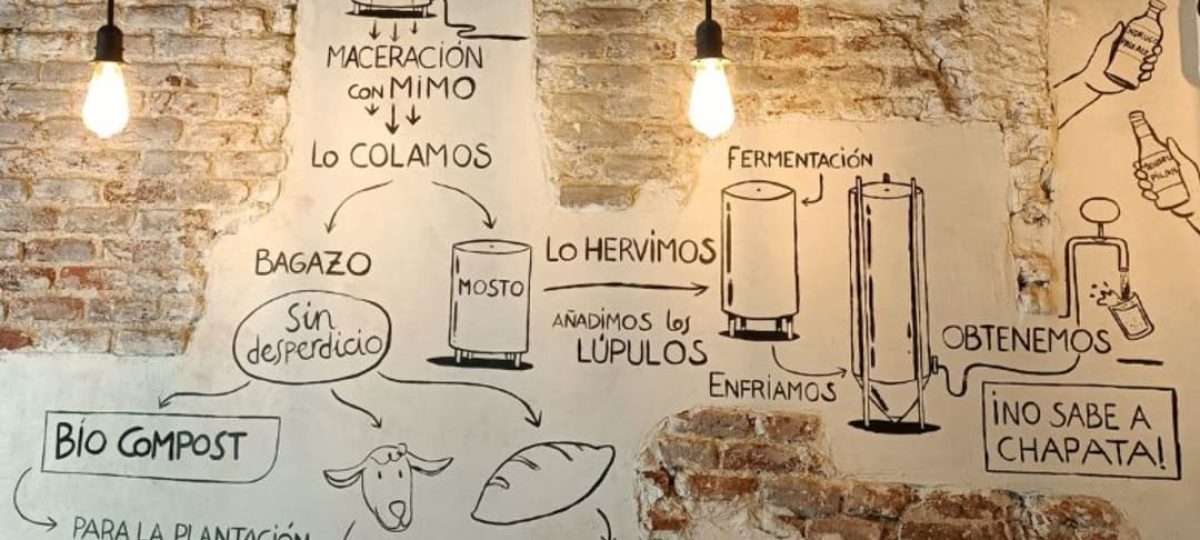 MACERACIÓN
CON MIMO
LO COLAMOS
BAGAZO
Sin
desperdicio
BIO COMPOST
PARA LA PLANTACIÓN
MOSTO
LO HERVIMOS
AÑADIMOS los
LÚPULOS
FERMENTACIÓN
ENFRIAMOS
OBTENEMOS
¡NO SABE A
CHAPATA!